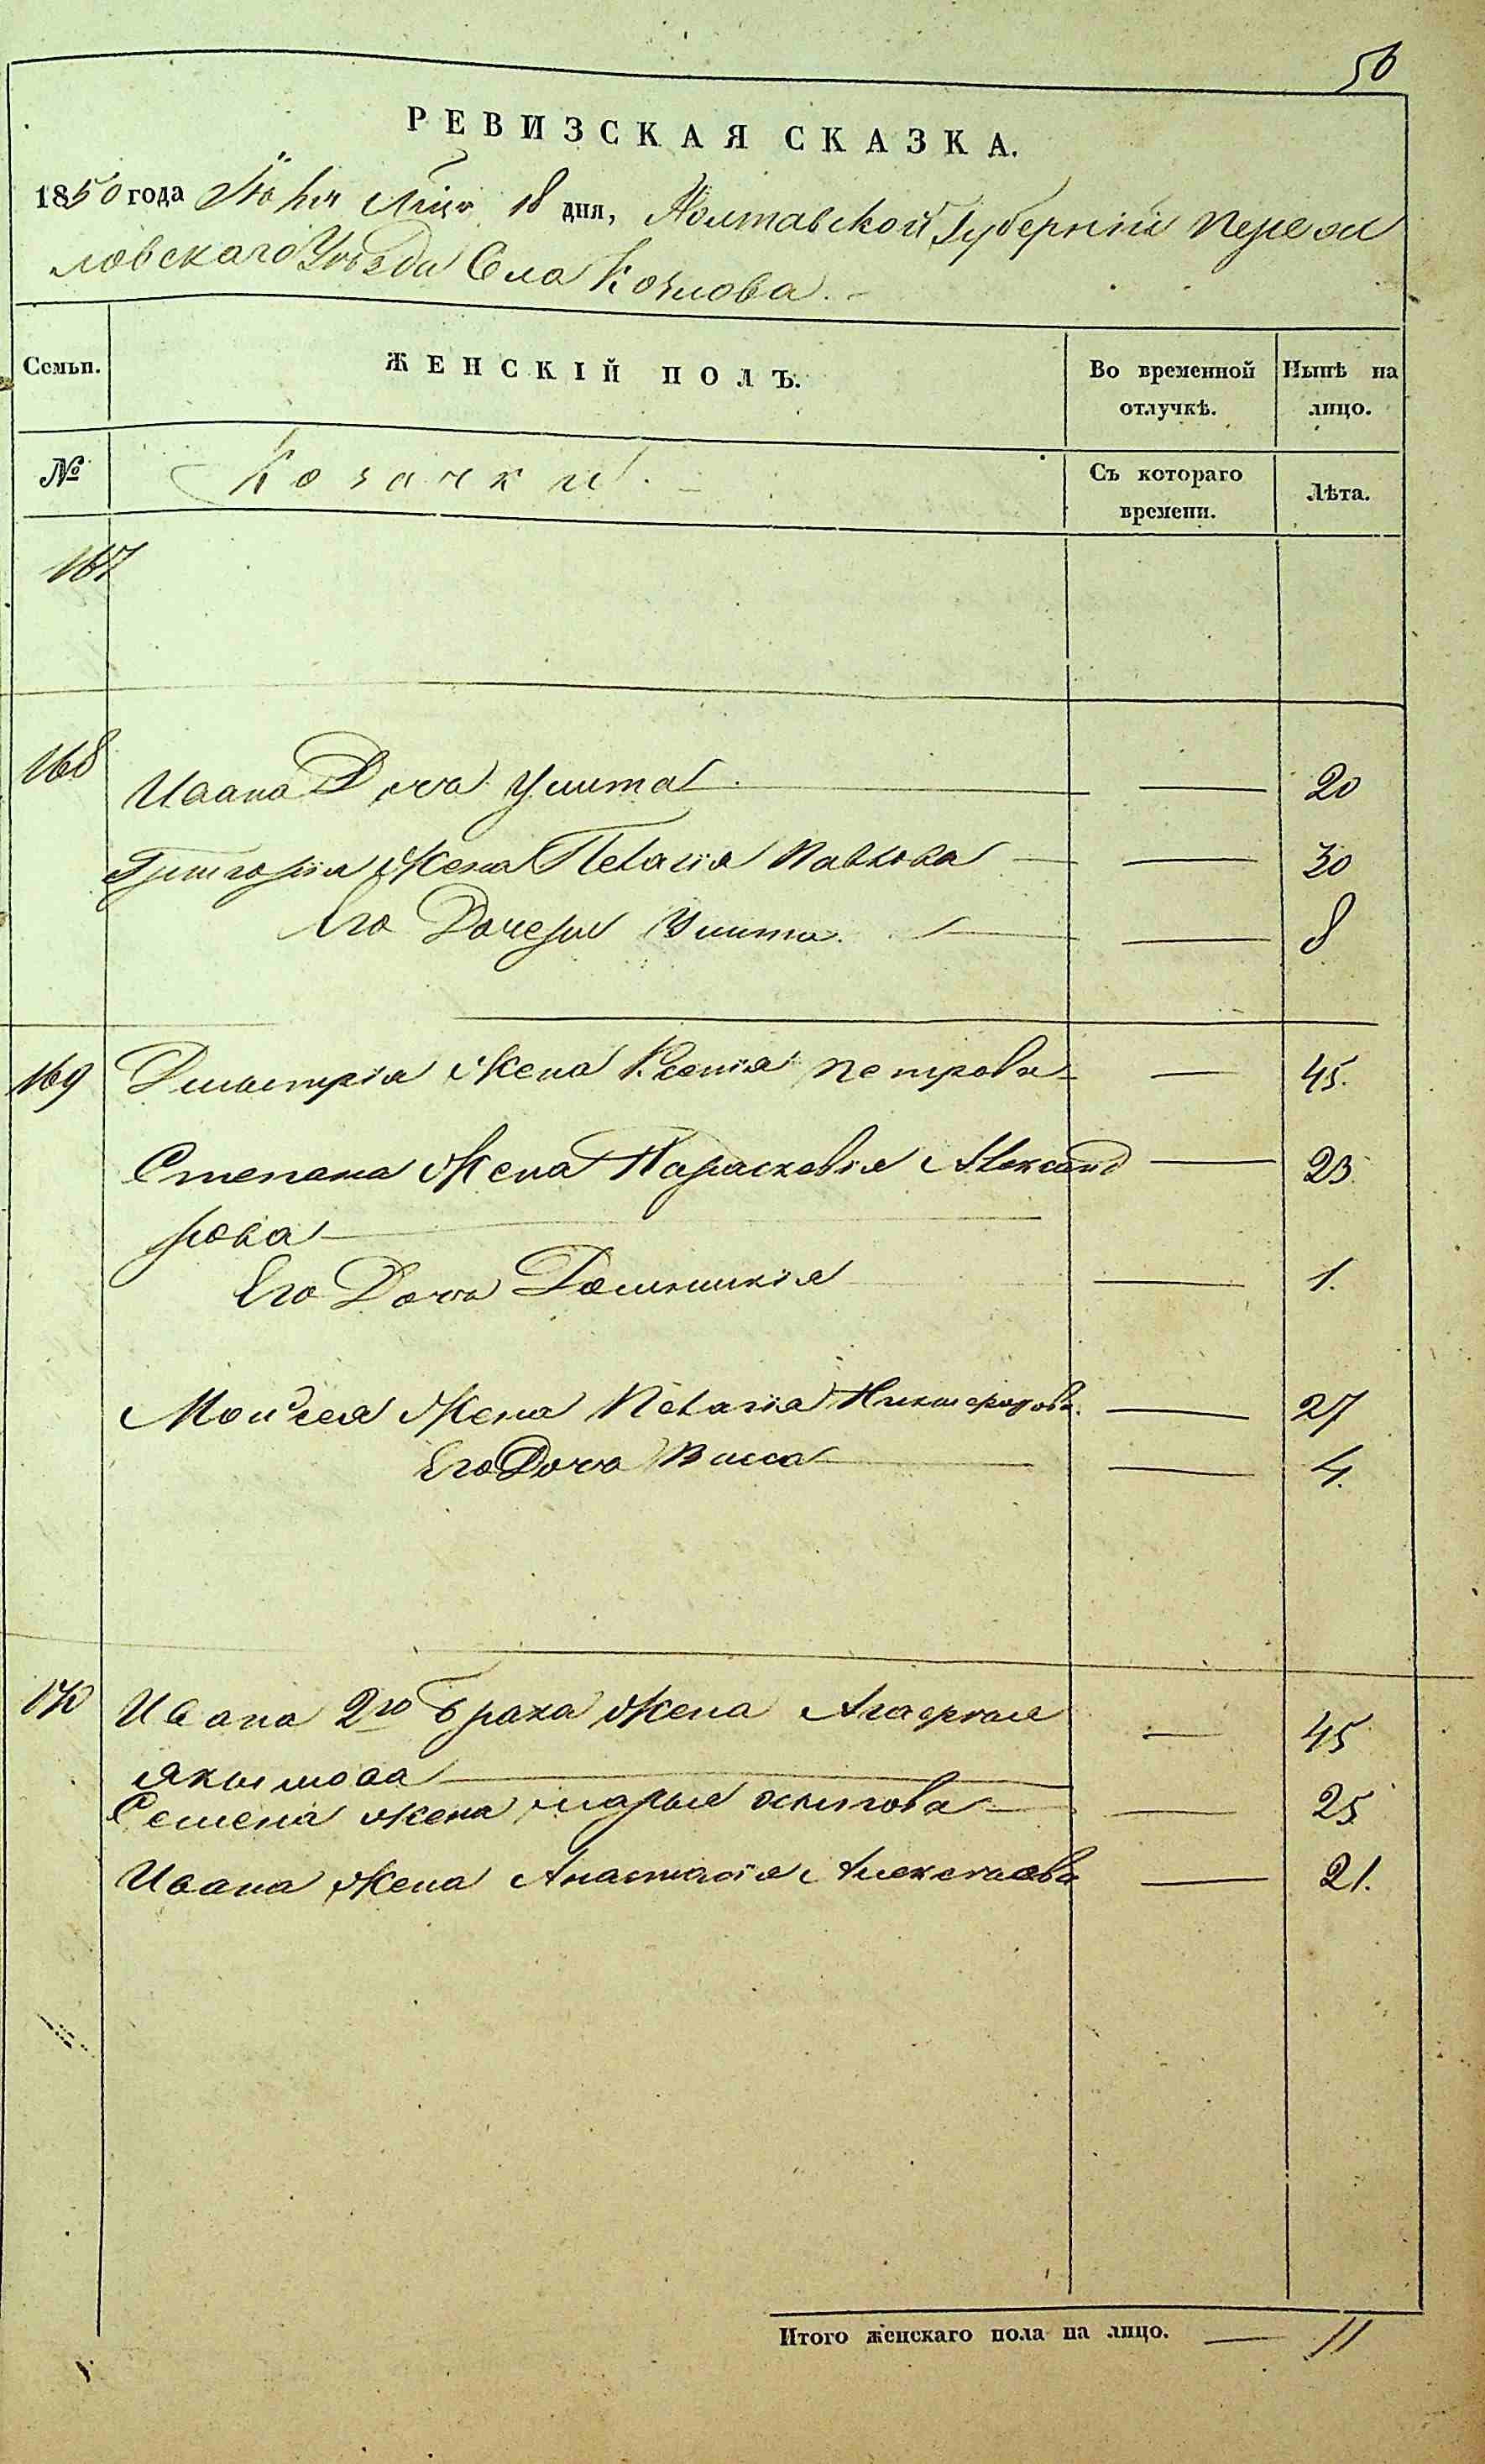 56
РЕВИЗСКАЯ СКАЗКА.
1850 года Июня 18 дня, Полтавской Губернии Переяс
ловскаго Уѣзда Села Козлова.
Семьи.
ЖЕНСКІЙ ПОЛЪ.
Во временной отлучкѣ.
Нынѣ на лицо.
№
Козачки.
Съ котораго времени.
Лѣта.
167
168
Ивана Дочь Улита 20
Григорія Жена Пелагія Павлова 30
Его Дочери Улита 8
169 Дмытрія Жена Ксенія Петрова 45.
Степана Жена Парасковія Александ 23
рова
Его Дочь Домникія 1.
Моисея Жена Пелагія 27
Его Дочь Васса 4.
170 Ивана 2го брака Жена Агафия 45
Якымова
Семена жена марья осипова 25
Ивана Жена Анастасія Алексѣева 21.
Итого женскаго пола на лицо. 11